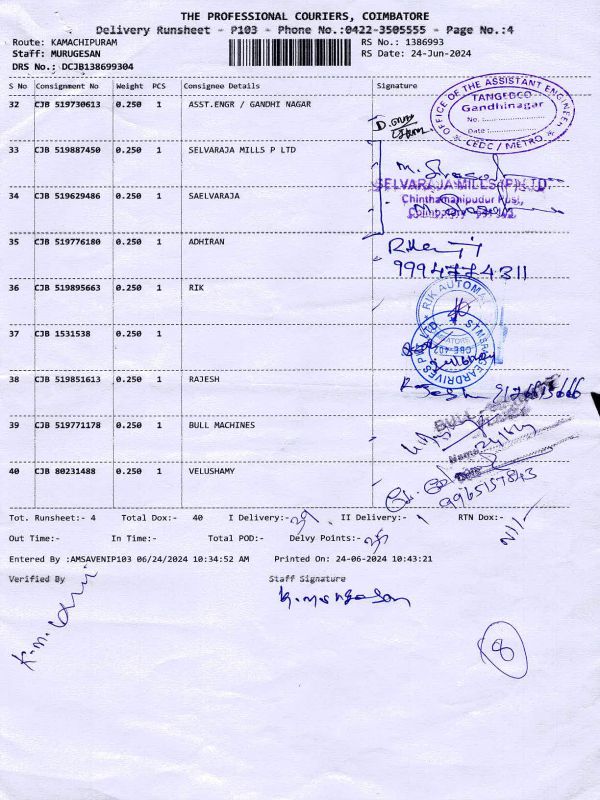 THE PROFESSIONAL COURIERS, COIMBATORE
Delivery Runsheet - P103 - Phone No.:0422-3505555 - Page No.:4
Route: KAMACHIPURAM RS No.: 1386993
Staff: MURUGESAN RS Date: 24-Jun-2024
DRS No.: DCJB138699304
S No Consignment No Weight PCS Consignee Details Signature
32 CJB 519730613 0.250 1 ASST.ENGR / GANDHI NAGAR
OFFICE OF THE ASSISTANT ENGINEER
TANGEDCO
Gandhinagar
No.:
Date:
CEDC / METRO
33 CJB 519887450 0.250 1 SELVARAJA MILLS P LTD
SELVARAJA MILLS (P) LTD.
Chinthamanipudur Post,
34 CJB 519629486 0.250 1 SAELVARAJA
35 CJB 519776180 0.250 1 ADHIRAN
36 CJB 519895663 0.250 1 RIK
RIK AUTOMA
37 CJB 1531538 0.250 1
CBE-402
38 CJB 519851613 0.250 1 RAJESH
Rajesh
39 CJB 519771178 0.250 1 BULL MACHINES
BULL
40 CJB 80231488 0.250 1 VELUSHAMY
9965157843
Tot. Runsheet:- 4 Total Dox:- 40 I Delivery:- 29 II Delivery:- RTN Dox:- Nil
Out Time:- In Time:- Total POD:- Delvy Points:- 25
Entered By :AMSAVENIP103 06/24/2024 10:34:52 AM Printed On: 24-06-2024 10:43:21
Verified By Staff Signature
8